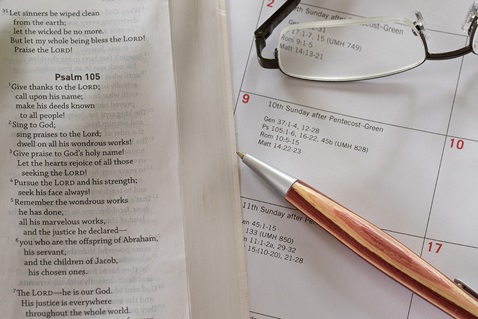 35 Let sinners be wiped clean
from the earth;
let the wicked be no more.
But let my whole being bless the LORD!
Praise the LORD!
Psalm 105
1 Give thanks to the LORD;
call upon his name;
make his deeds known
to all people!
2 Sing to God;
sing praises to the Lord;
dwell on all his wondrous works!
3 Give praise to God's holy name!
Let the hearts rejoice of all those
seeking the LORD!
4 Pursue the LORD and his strength;
seek his face always!
5 Remember the wondrous works
he has done,
all his marvelous works,
and the justice he declared—
6 you who are the offspring of Abraham,
his servant,
and the children of Jacob,
his chosen ones.
7 The LORD—he is our God.
His justice is everywhere
throughout the whole world.
2
9th Sunday after Pentecost–Green
17:1-7, 15 (UMH 749)
Rom 9:1-5
Matt 14:13-21
9
10th Sunday after Pentecost–Green
Gen 37:1-4, 12-28
Ps 105:1-6, 16-22, 45b (UMH 828)
Rom 10:5-15
Matt 14:22-23
10
11th Sunday after
45:1-15
133 (UMH 850)
11:1-2a, 29-32
15:(10-20), 21-28
17